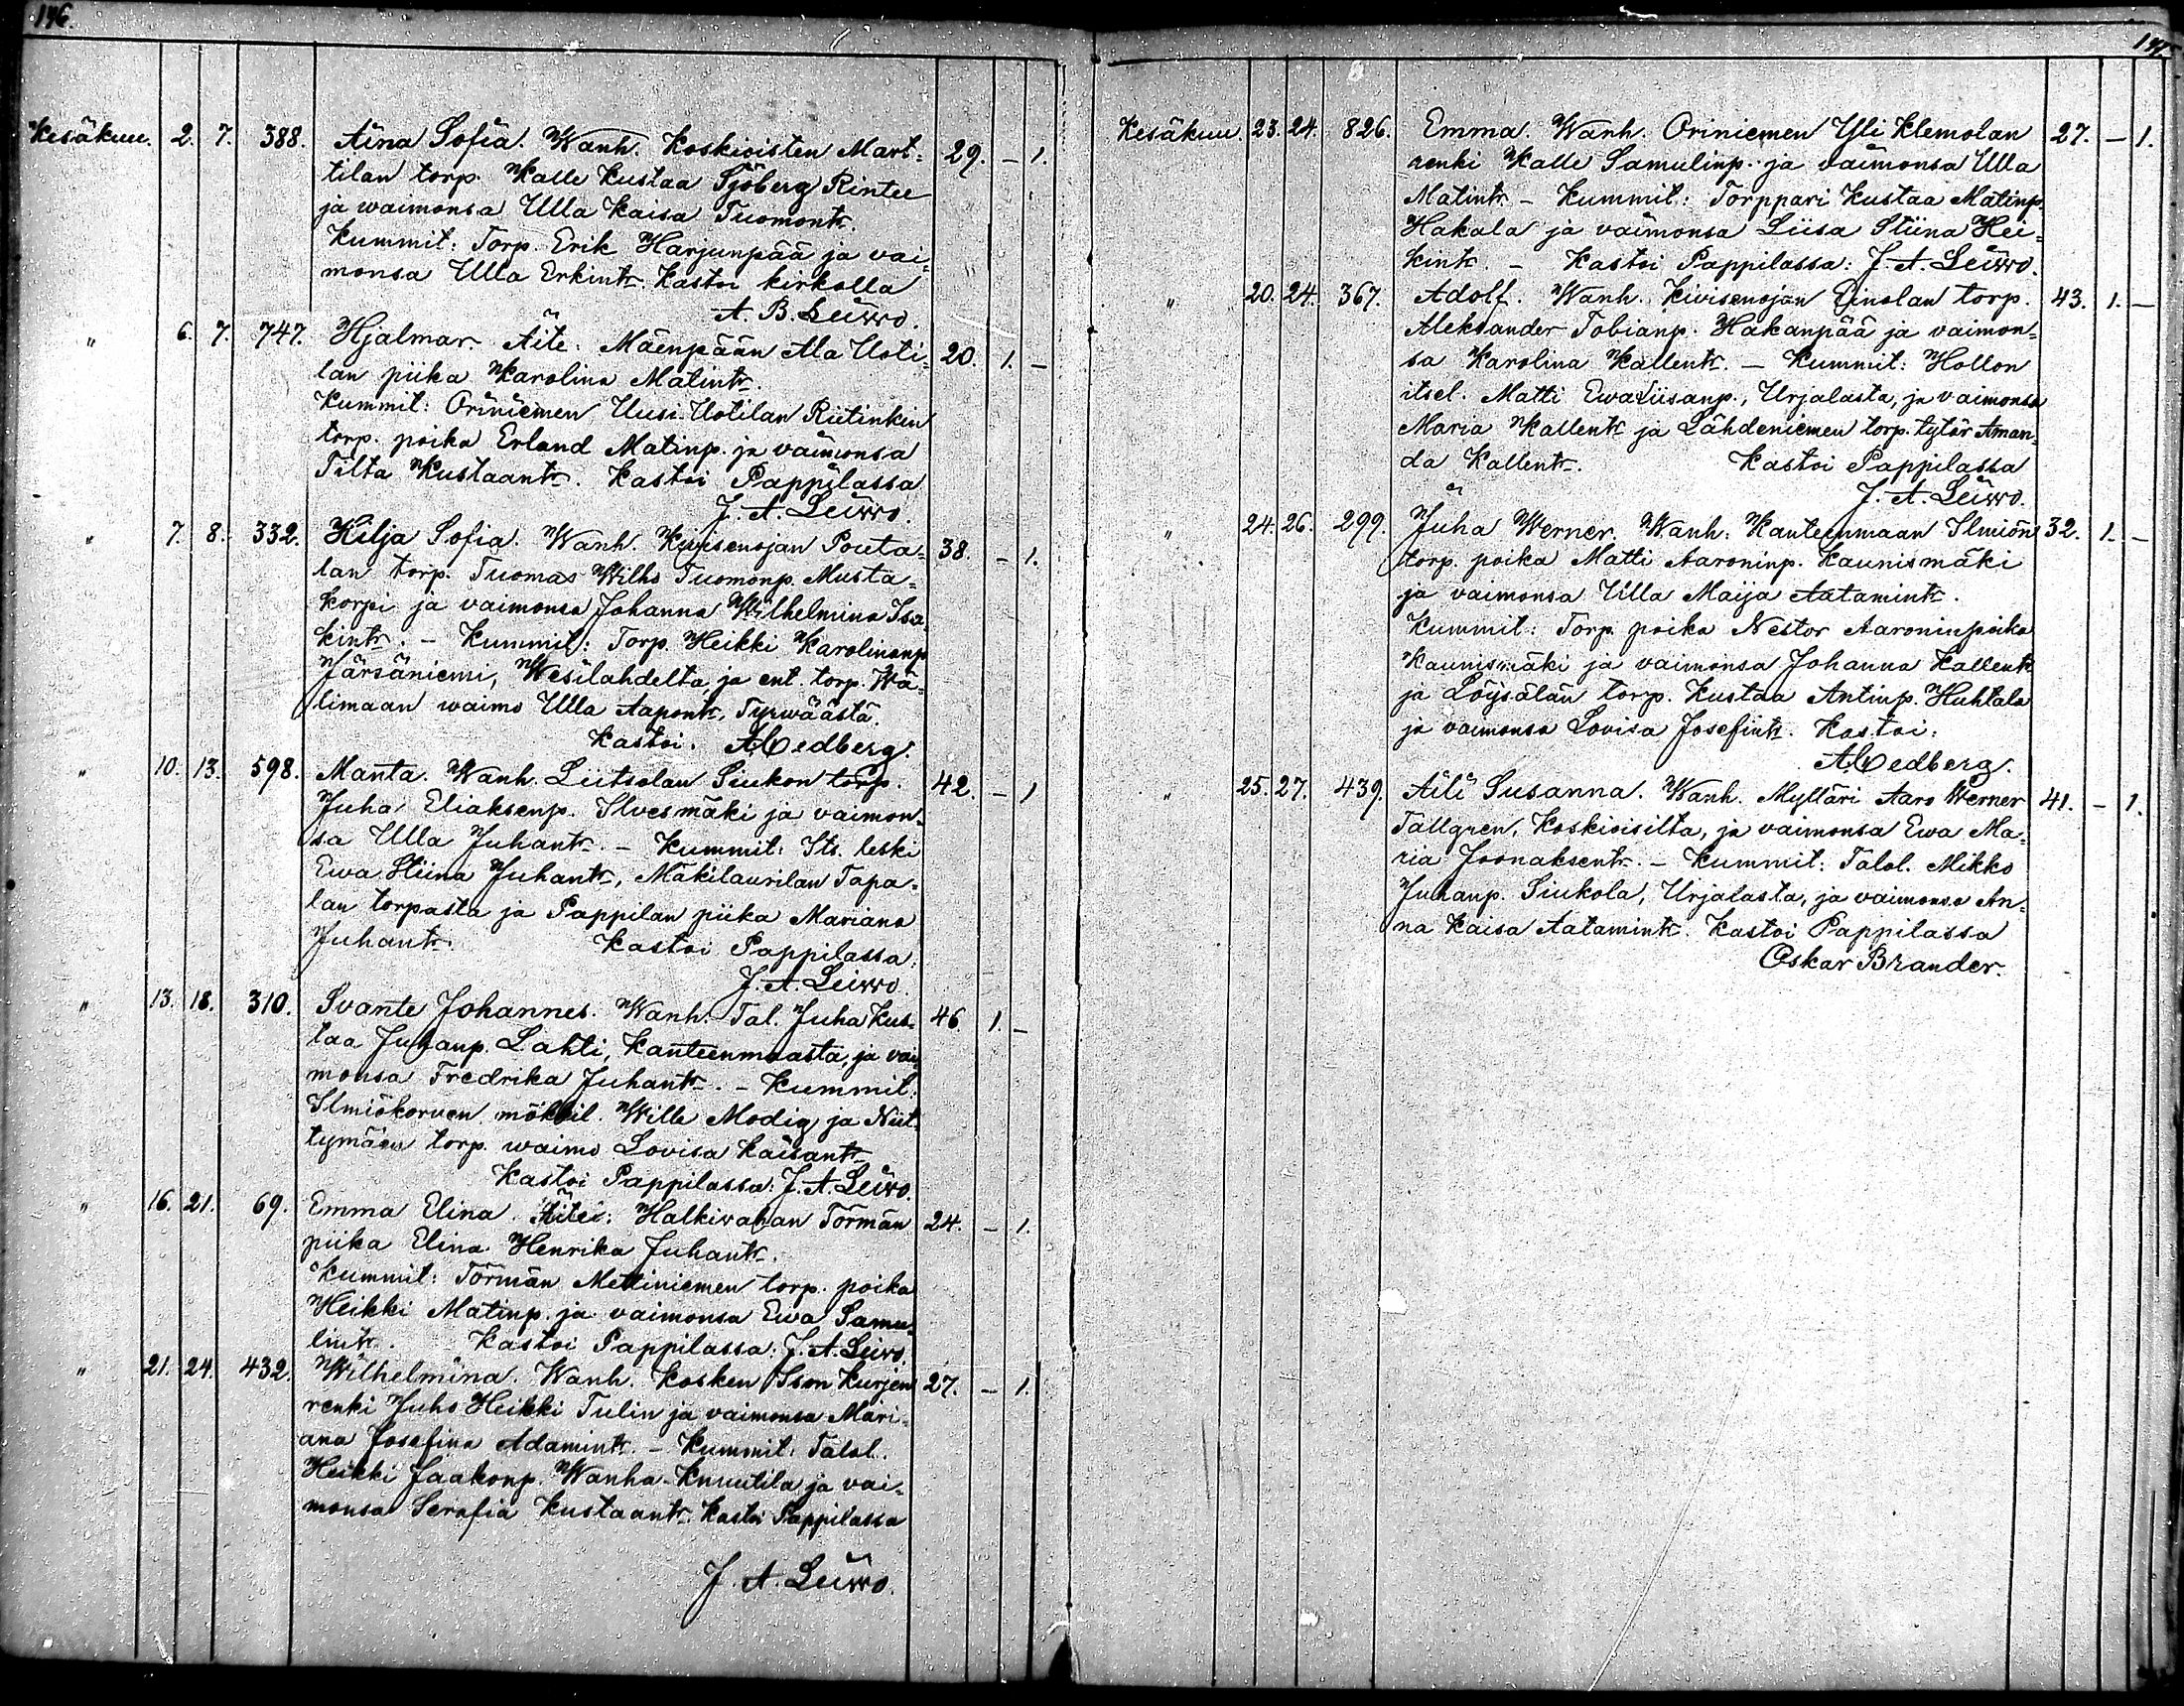 146.
Kesäkuu. 2. 7. 388. Aina Sofia. Wanh. Koskioisten Mart= 29. – 1.
tilan torp. Kalle Kustaa Sjöberg Rintee
ja waimonsa Ulla Kaisa Tuomontr.
Kummit: Torp. Erik Harjunpää ja vai=
monsa Ulla Erkintr. Kastoi kirkolla
A. B. Leiwo.
" 6. 7. 747. Hjalmar. Äite: Mäenpään Ala Uoti= 20. 1. –
lan piika Karolina Matintr.
Kummit: Oriniemen Uusi-Uotilan Riitinkin
torp. poika Erland Matinp. ja vaimonsa
Tilta Kustaantr. Kastoi Pappilassa
J. A. Leiwo.
" 7. 8. 332. Hilja Sofia. Wanh. Kivisenojan Pouta= 38. – 1.
lan torp. Tuomas Wilho Tuomonp. Musta=
korpi ja vaimonsa Johanna Wilhelmina Isa=
kintr. – Kummit: Torp. Heikki Karolinanp
Järsäniemi, Wesilahdelta, ja ent. torp. Wä=
limaan waimo Ulla Aapontr, Tyrwäästä.
Kastoi. A. Cedberg.
" 10. 13. 598. Manta. Wanh. Liitsolan Siukon torp. 42. – 1
Juha Eliaksenp. Ilvesmäki ja vaimon=
sa Ulla Juhantr. – Kummit: Its. leski
Ewa Stiina Juhantr, Mäkilaurilan Tapa=
lan torpasta ja Pappilan piika Mariana
Juhantr. Kastoi Pappilassa:
J. A. Leiwo.
" 13. 18. 310. Svante Johannes. Wanh. Tal. Juha Kus= 46. 1. –
taa Juhanp. Lahti, Kanteenmaasta, ja vai=
monsa Fredrika Juhantr. – Kummit:
Ilmiökorven mökkil. Wille Modig ja Niit=
tymäen torp. waimo Lovisa Kaisantr
Kastoi Pappilassa: J. A. Leiwo.
" 16. 21. 69. Emma Elina. Äitei: Halkivahan Törmän 24. – 1.
piika Elina Henrika Juhantr.
Kummit: Törmän Mettiniemen torp. poika
Heikki Matinp. ja vaimonsa Ewa Samu=
lintr. Kastoi Pappilassa: J. A. Leiwo.
" 21. 24. 432. Wilhelmina. Wanh. Kosken Ison Kurjen 27. – 1.
renki Juho Heikki Tulin ja vaimonsa Mari=
ana Josefina Adamintr. – Kummit: Talol.
Heikki Jaakonp. Wanha-Knuutila ja vai=
monsa Serafia Kustaantr. Kastoi Pappilassa
J. A. Leiwo.
Kesäkuu. 23. 24. 826. Emma. Wanh. Oriniemen Yli Klemolan 27. – 1.
renki Kalle Samulinp. ja vaimonsa Ulla
Matintr. – Kummit: Torppari Kustaa Matinp.
Hakala ja vaimonsa Liisa Stiina Hei=
kintr. – Kastoi Pappilassa: J. A. Leiwo.
" 20. 24. 367. Adolf. Wanh. Kivisenojan Einolan torp. 43. 1. –
Aleksander Tobianp. Hakanpää ja vaimon=
sa Karolina Kallentr. – Kummit: Hollon
itsel. Matti Ewaliisanp., Urjalasta, ja vaimonsa
Maria Kallentr ja Lähdeniemen torp. tytär Aman=
da Kallentr. Kastoi Pappilassa
J. A. Leiwo.
" 24. 26. 299. Juha Werner. Wanh. Kanteenmaan Ilmiön 32. 1. –
torp. poika Matti Aaroninp. Kaunismäki
ja vaimonsa Ulla Maija Aatamintr.
Kummit: Torp. poika Nestor Aaroninpoika
Kaunismäki ja vaimonsa Johanna Kallentr
ja Löysälän torp. Kustaa Antinp. Huhtala
ja vaimonsa Lovisa Josefintr. Kastoi:
A. Cedberg.
" 25. 27. 439. Aili Susanna. Wanh. Mylläri Aaro Werner 41. – 1.
Tallgren, Koskioisilta, ja vaimonsa Ewa Ma=
ria Joonaksentr. – Kummit: Talol. Mikko
Juhanp. Siukola, Urjalasta, ja vaimonsa An=
na Kaisa Aatamintr. Kastoi Pappilassa
Oskar Brander.